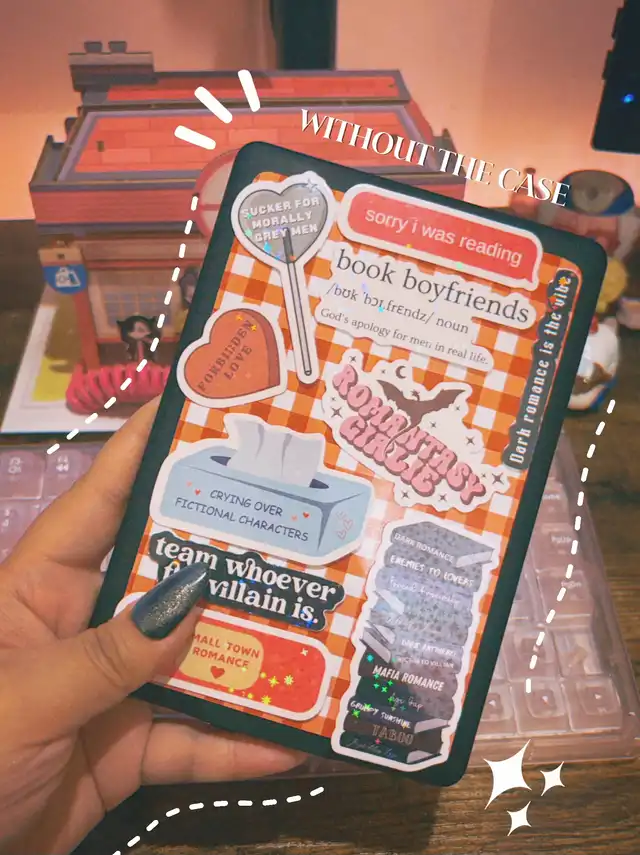 WITHOUT THE CASE
SUCKER FOR
MORALLY
GREY MEN
sorry i was reading
book boyfriends
/bʊk ˈbɔɪ.frɛndz/ noun
God's apology for men in real life.
Dark romance is the vibe
FORBIDDEN
LOVE
ROMANTASY
GIRLIE
CRYING OVER
FICTIONAL CHARACTERS
team whoever
villain is.
SMALL TOWN
ROMANCE
DARK ROMANCE
ENEMIES TO LOVERS
MAFIA ROMANCE
Age Gap
GRUMPY SUNSHINE
TABOO